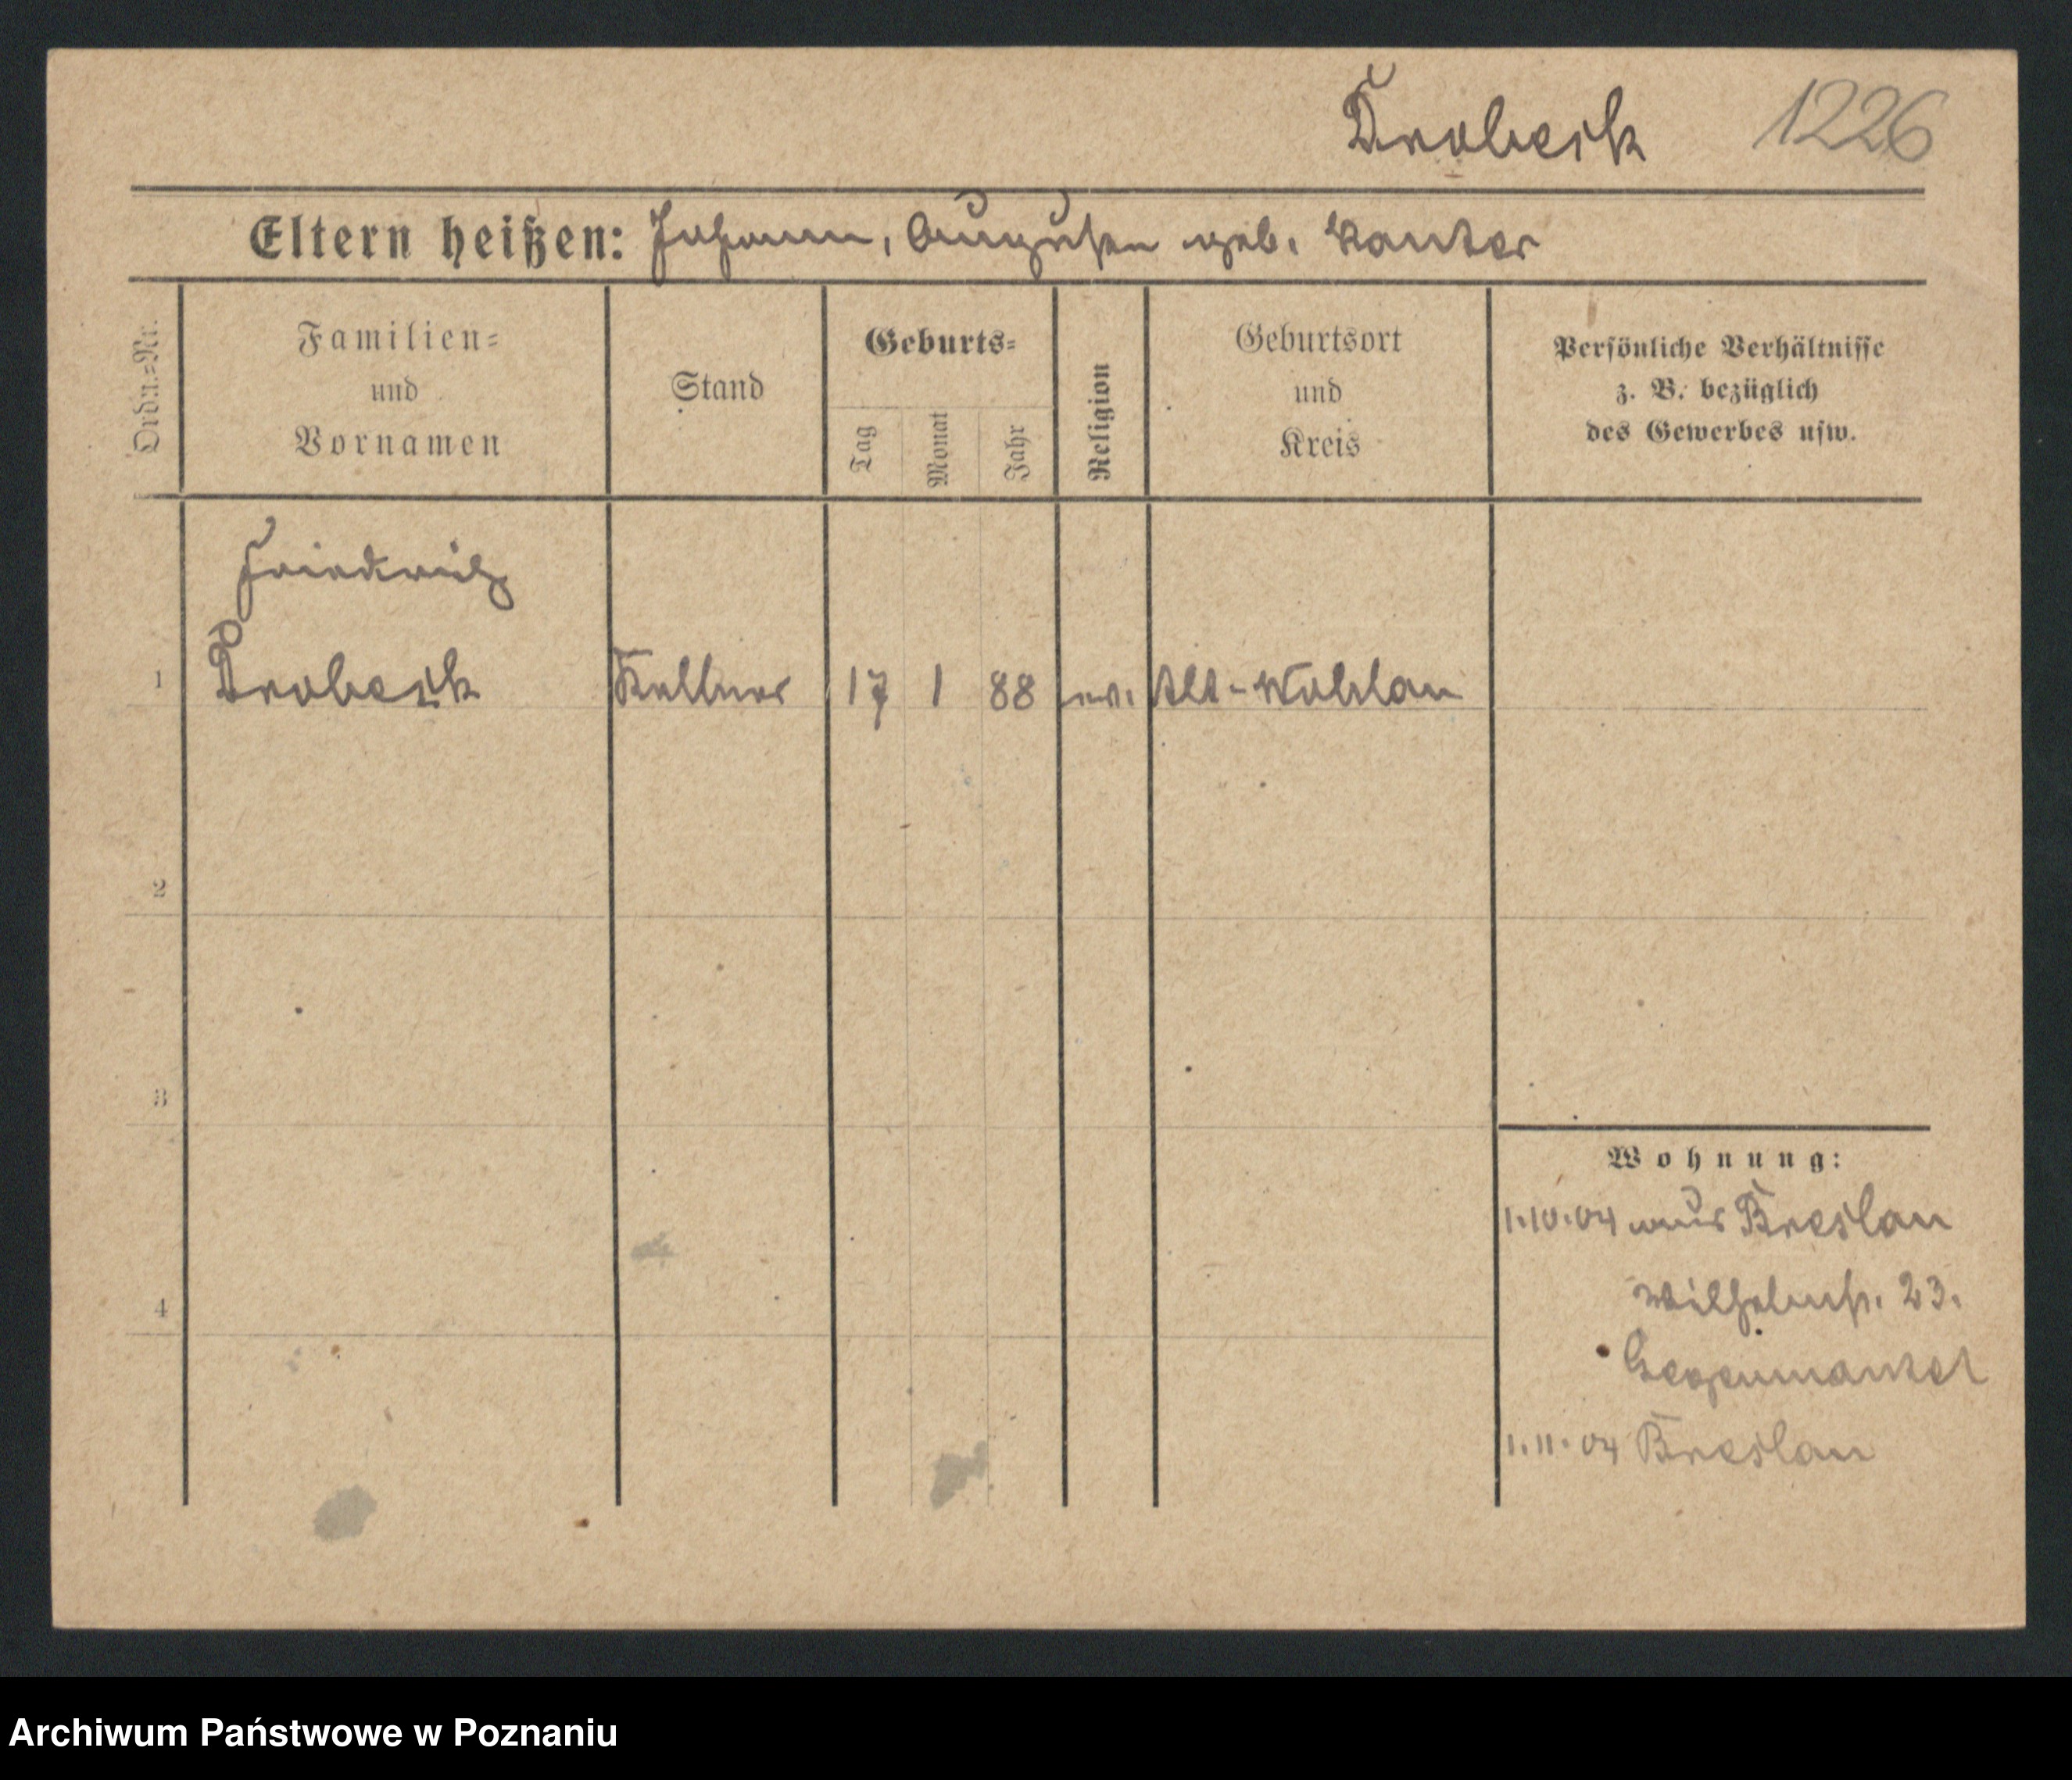 Drobeck 1226
Eltern heißen: Johann, Augusten geb. Kanter
Ordn.=Nr.
Familien=
und
Vornamen
Stand
Geburts=
Tag
Monat
Jahr
Religion
Geburtsort
und
Kreis
Persönliche Verhältnisse
z. B. bezüglich
des Gewerbes usw.
Friedrich
1 Drobeck Kellner 17 1 88 ev. Alt-Wohlau
2
3
4
Wohnung:
1.10.04 aus Breslau
Wilhelmst. 23.
1.11.04 Breslau
Archiwum Państwowe w Poznaniu